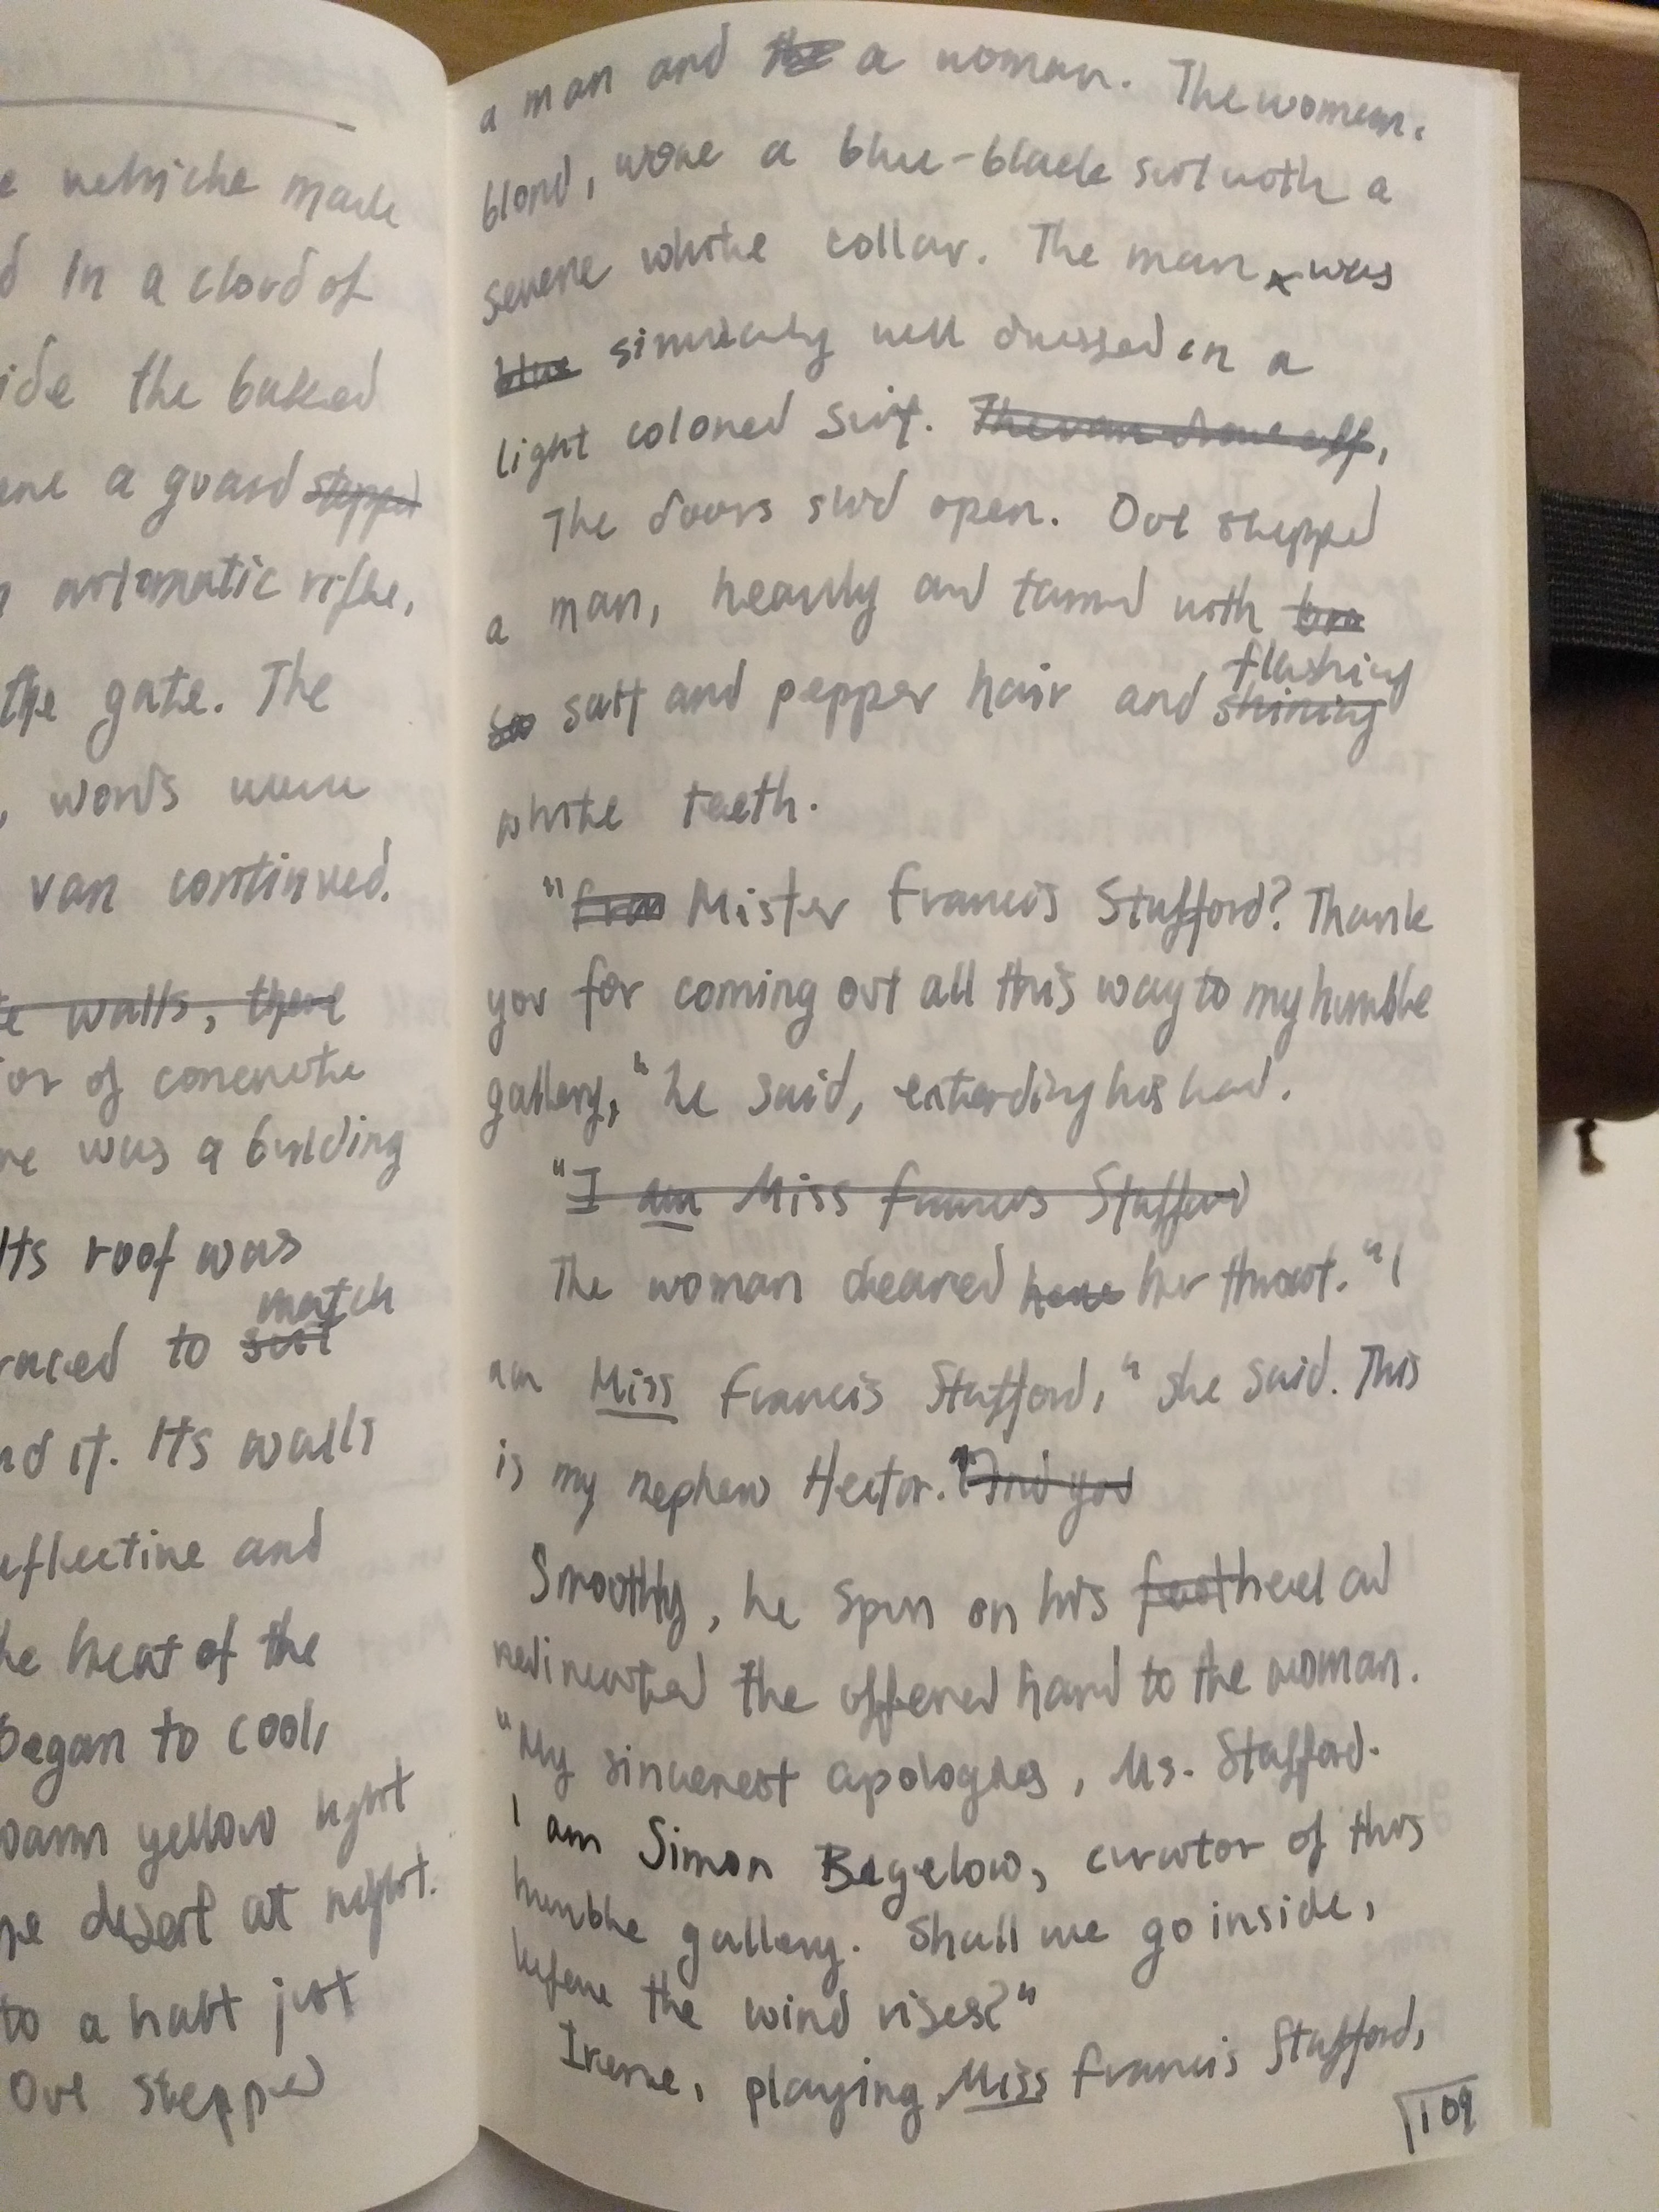 vehicle made
d in a cloud of
ide the baked
a guard stepped
automatic rifle,
the gate. The
, words were
van continued.
walls, there
or of concrete
was a building
Its roof was
match
raced to suit
nd it. Its walls
eflective and
he heat of the
began to cool,
warm yellow light
he desert at night.
to a halt just
Out stepped
a man and the a woman. The woman,
blond, wore a blue-black suit with a
severe white collar. The man, was
blue similarly well dressed in a
light colored suit. The van drove off,
The doors slid open. Out stepped
a man, heavily and tanned with
salt and pepper hair and shining
flashing
white teeth.
"Fran Mister Francis Stafford? Thank
you for coming out all this way to my humble
gallery," he said, extending his hand.
"I am Miss Francis Stafford
The woman cleared here her throat. "I
am Miss Francis Stafford," she said. This
is my nephew Hector." And you
Smoothly, he spun on his foot heel and
redirected the offered hand to the woman.
"My sincerest apologies, Ms. Stafford.
I am Simon Begelow, curator of this
humble gallery. Shall we go inside,
before the wind rises?"
Irene, playing Miss Francis Stafford,
109